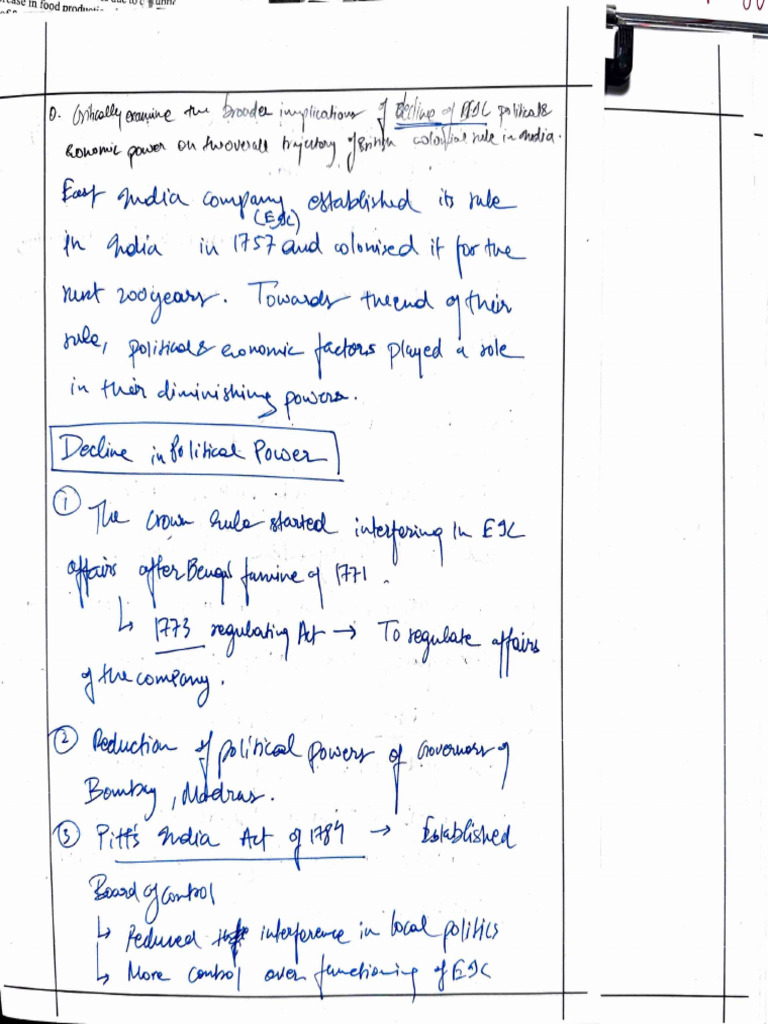 in food production
Q. Critically examine the broader implications of decline of EIC political &
economic power on the overall trajectory of British colonial rule in India.
East India company established its rule
(EIC)
in India in 1757 and colonised it for the
next 200 years. Towards the end of their
rule, political & economic factors played a role
in their diminishing powers.
Decline in Political Power
① The Crown Rule started interfering in EIC
affairs after Bengal famine of 1771.
↳ 1773 regulating Act → To regulate affairs
of the company.
② Reduction of political powers of Governors of
Bombay, Madras.
③ Pitt's India Act of 1784 → Established
Board of control
↳ Reduced interference in local politics
↳ More control over functioning of EIC